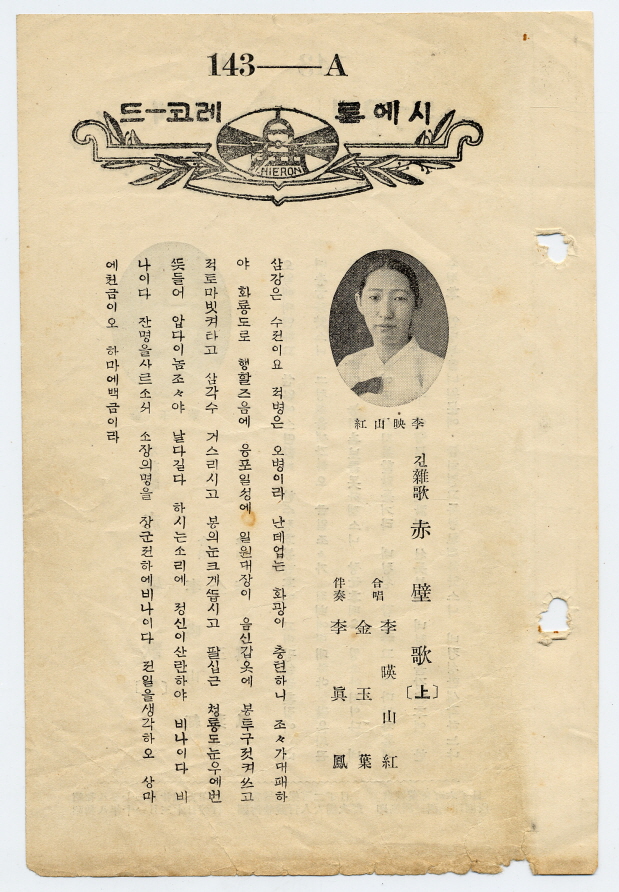 143——A
시에론 레코ー드
HIERON
李映山紅
긴雜歌 赤壁歌〔上〕
合唱 李暎山紅
金玉葉
伴奏 李眞鳳
삼강은 수전이요 적병은 오병이라 난데업는 화광이 충련하니 조々가대패하
야 화룡도로 행할즈음에 응포일성에 일원대장이 음신갑옷에 봉투구젓켜쓰고
적토마빗켜타고 삼각수 거스리시고 봉의눈크게뜹시고 팔십근 청룡도눈우에번
뜻들어 압다이놈조々야 날다길다 하시는소리에 정신이산란하야 비나이다 비
나이다 잔명을사르소서 소장의명을 장군전하에비나이다 전일을생각하오 상마
에천금이오 하마에백금이라